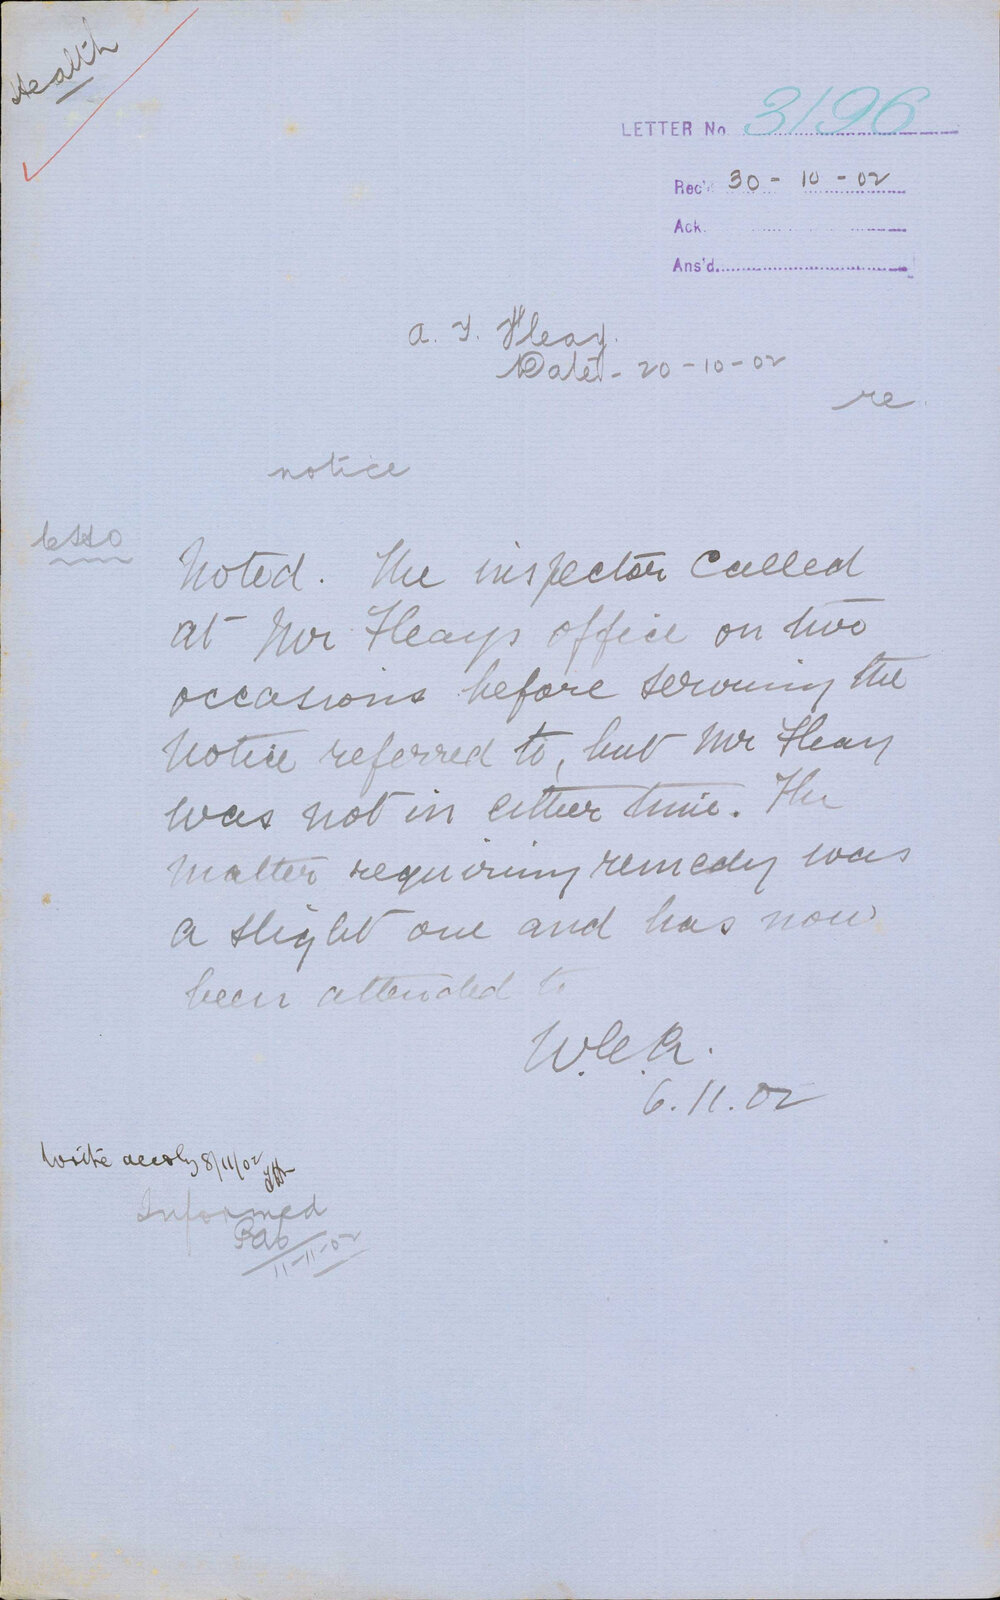 Health
LETTER No 3196
Rec'd 30 - 10 - 02
Ack.
Ans'd.
A. Y. Fleay.
Date - 20-10-02
re
notice
Noted. The inspector called
at Mr Fleays office on two
occasions before serving the
Notice referred to, but Mr Fleay
was not in either time. The
matter requiring remedy was
a slight one and has now
been attended to
6.11.02
Write accdly 8/11/02
Informed
11-11-02